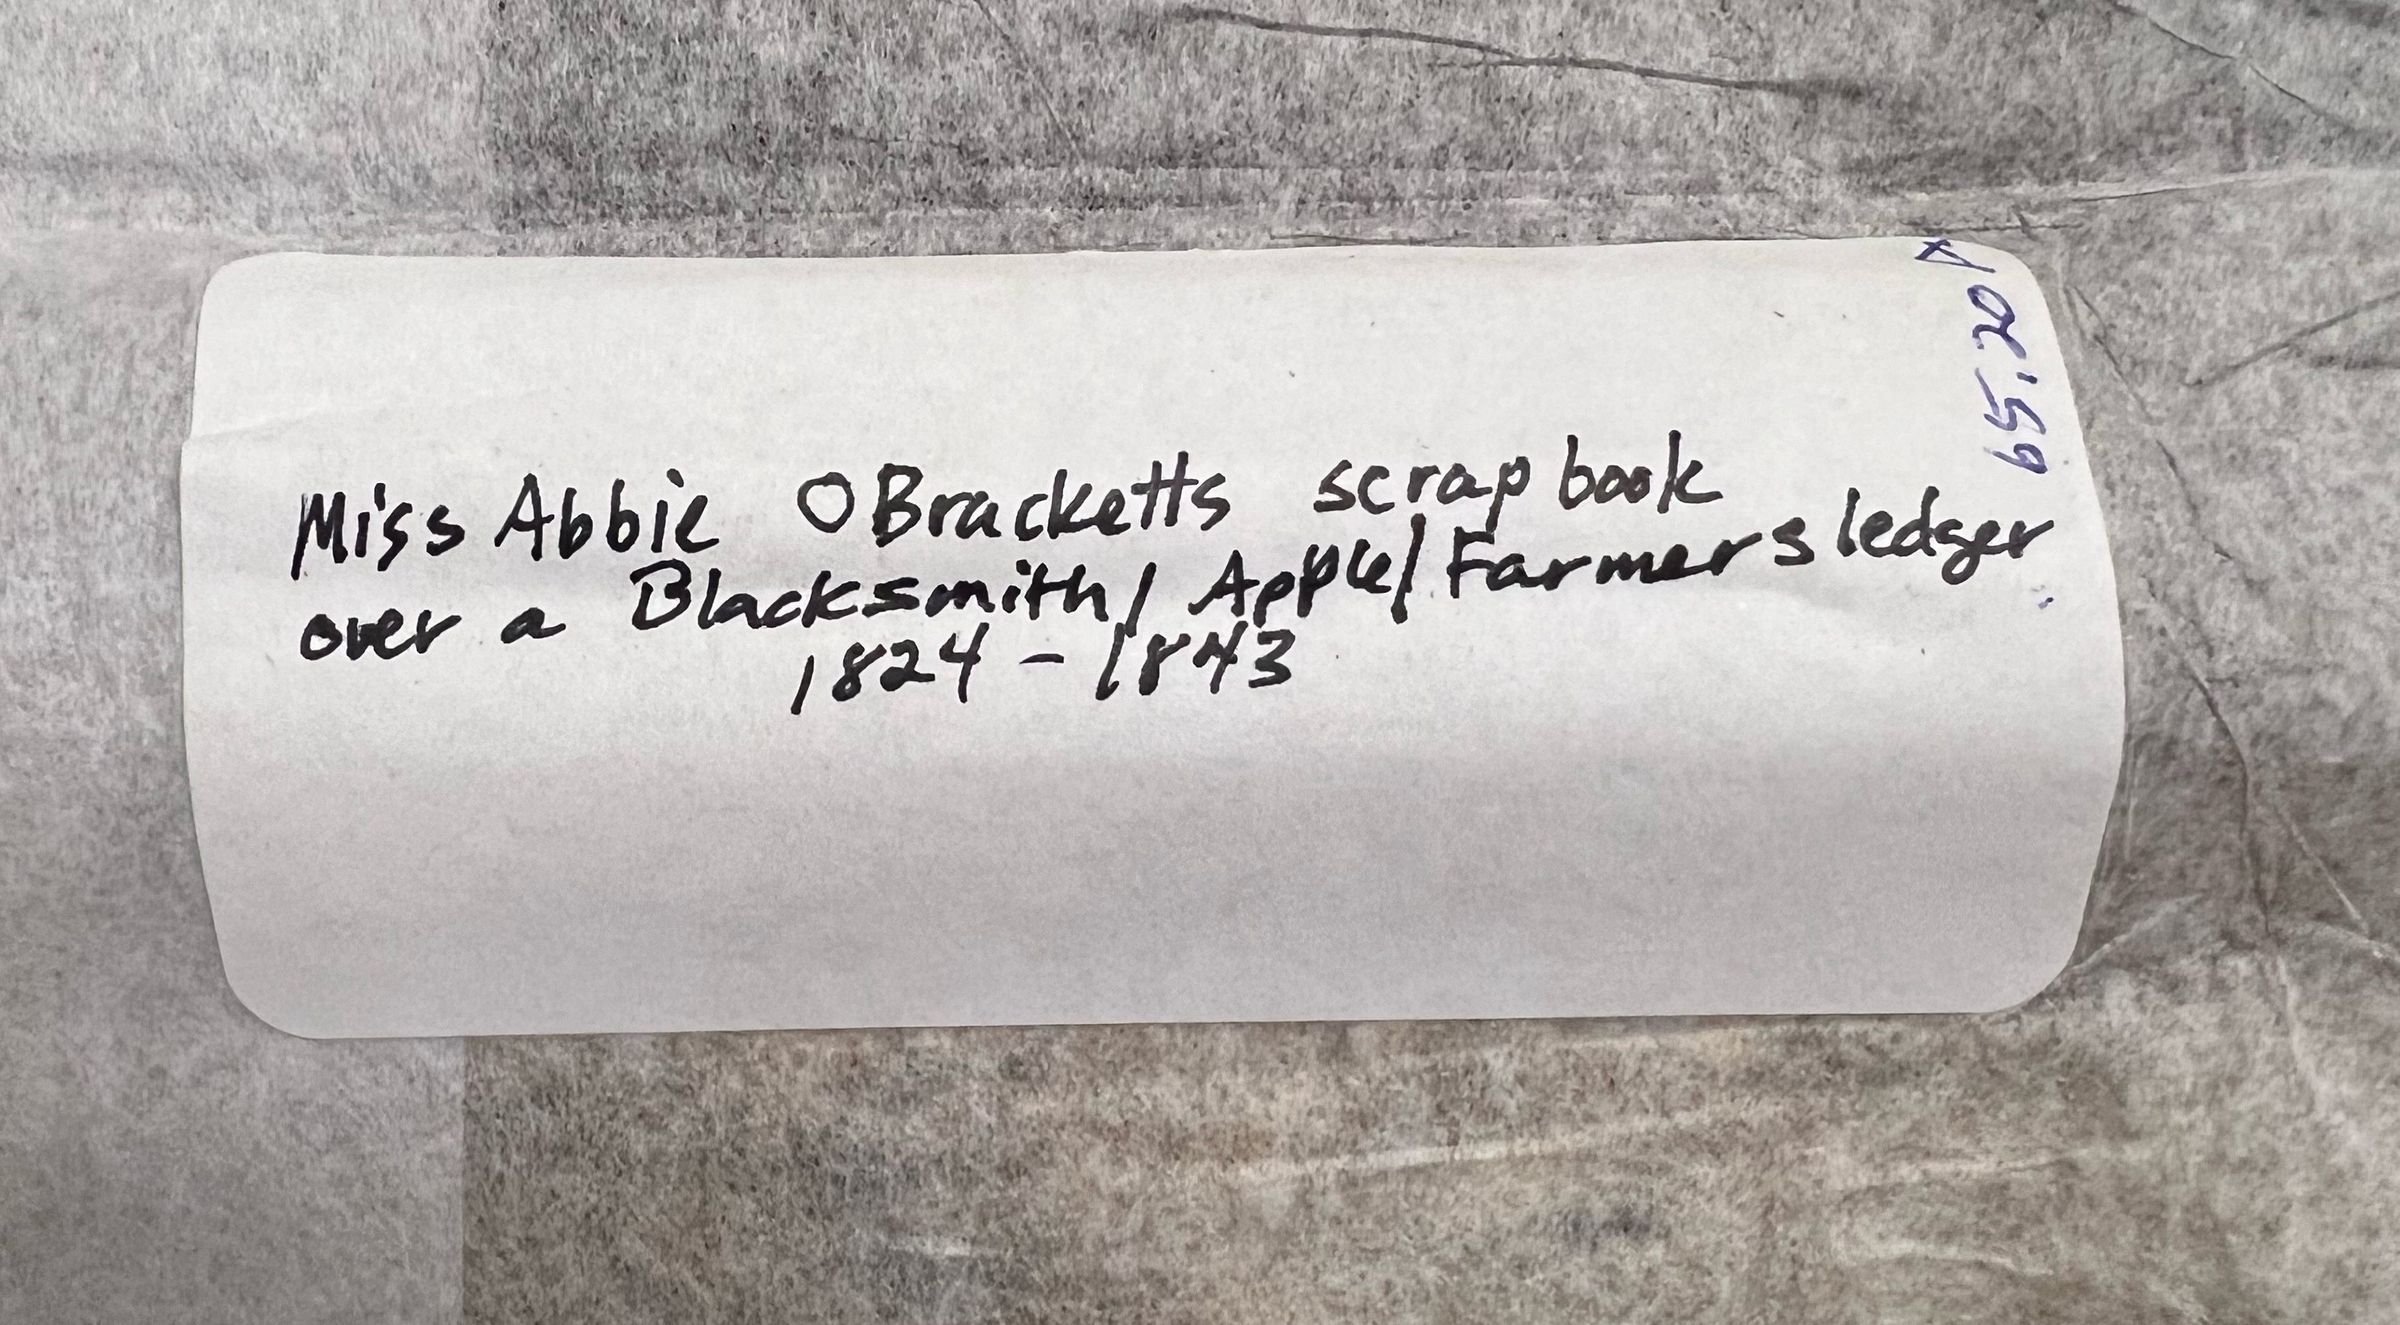 Miss Abbie O Bracketts scrapbook
over a Blacksmith/Apple/Farmers ledger
1824 - 1843
65.20A